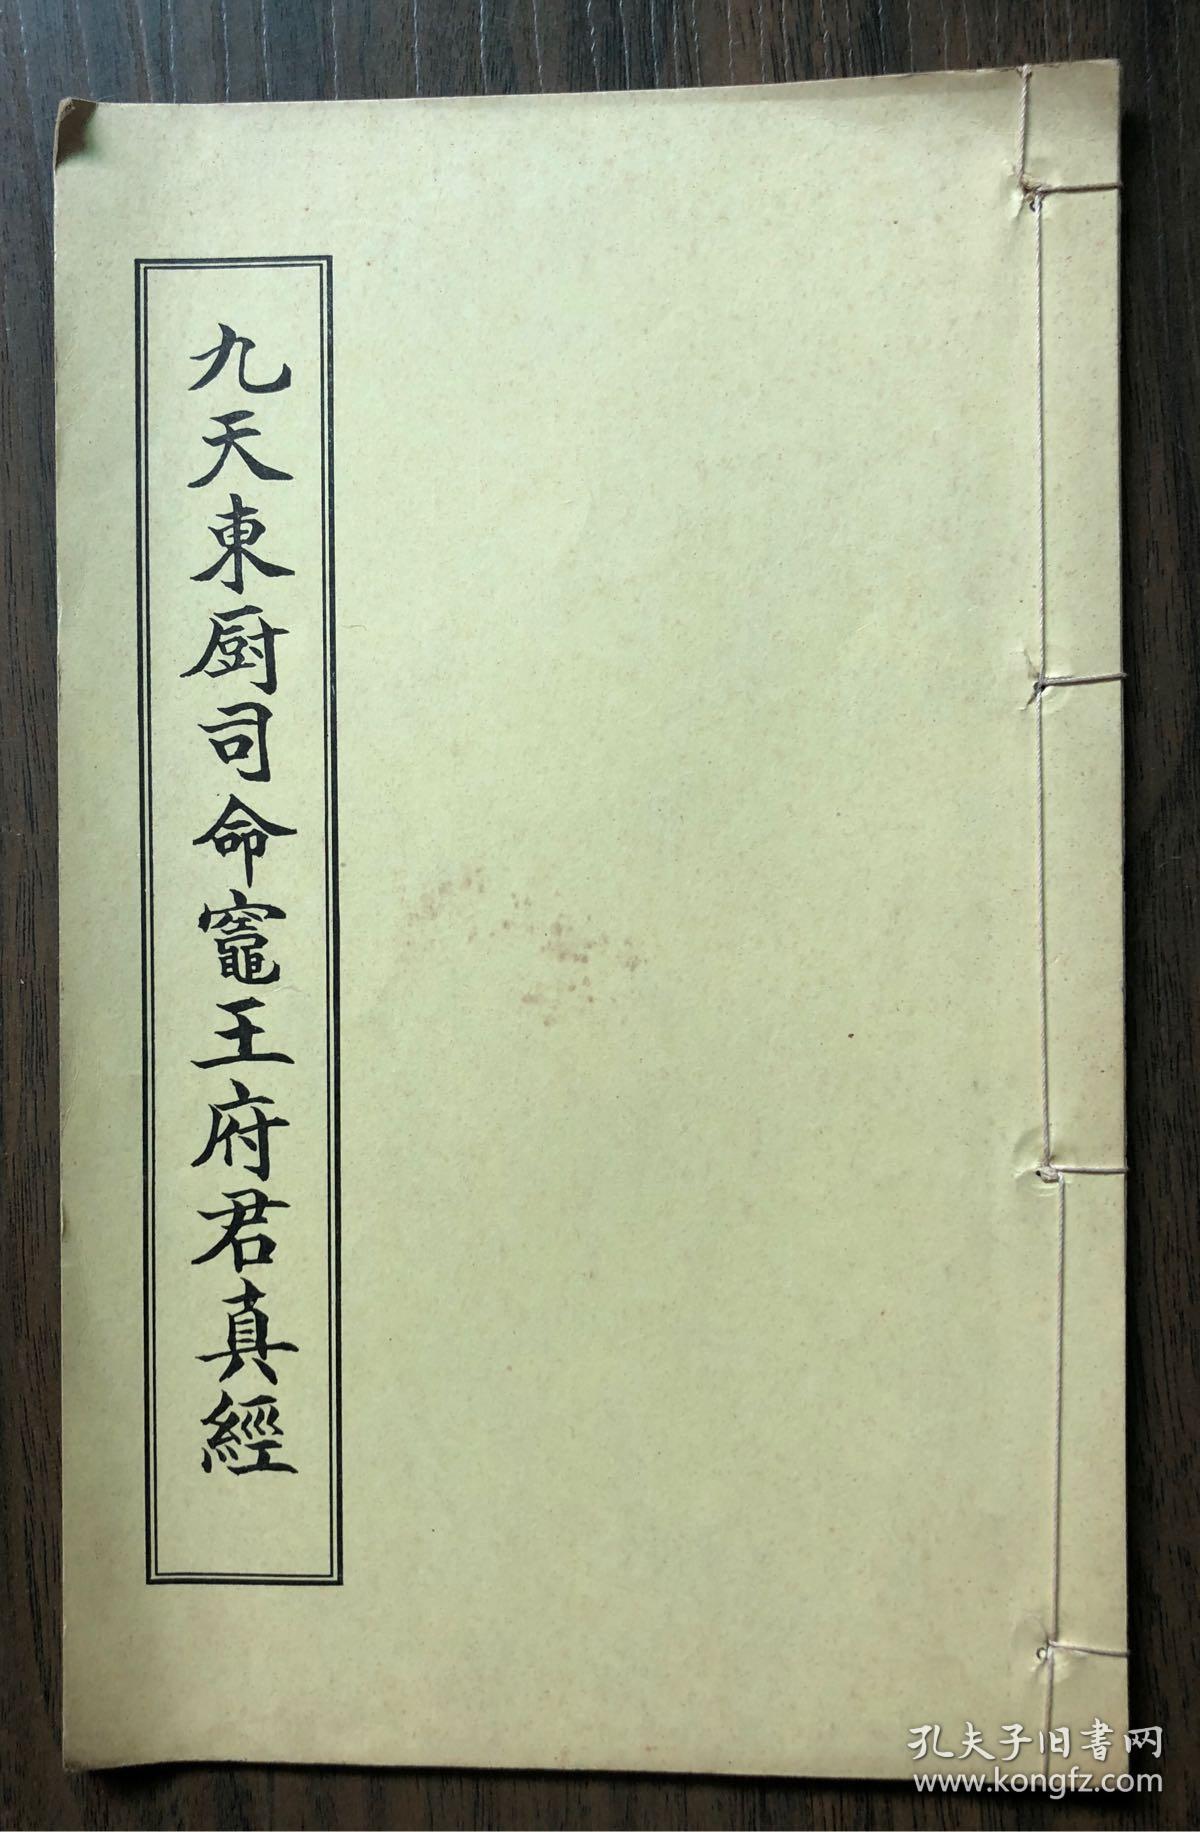 九天東厨司命竈王府君真經
孔夫子旧書网
www.kongfz.com